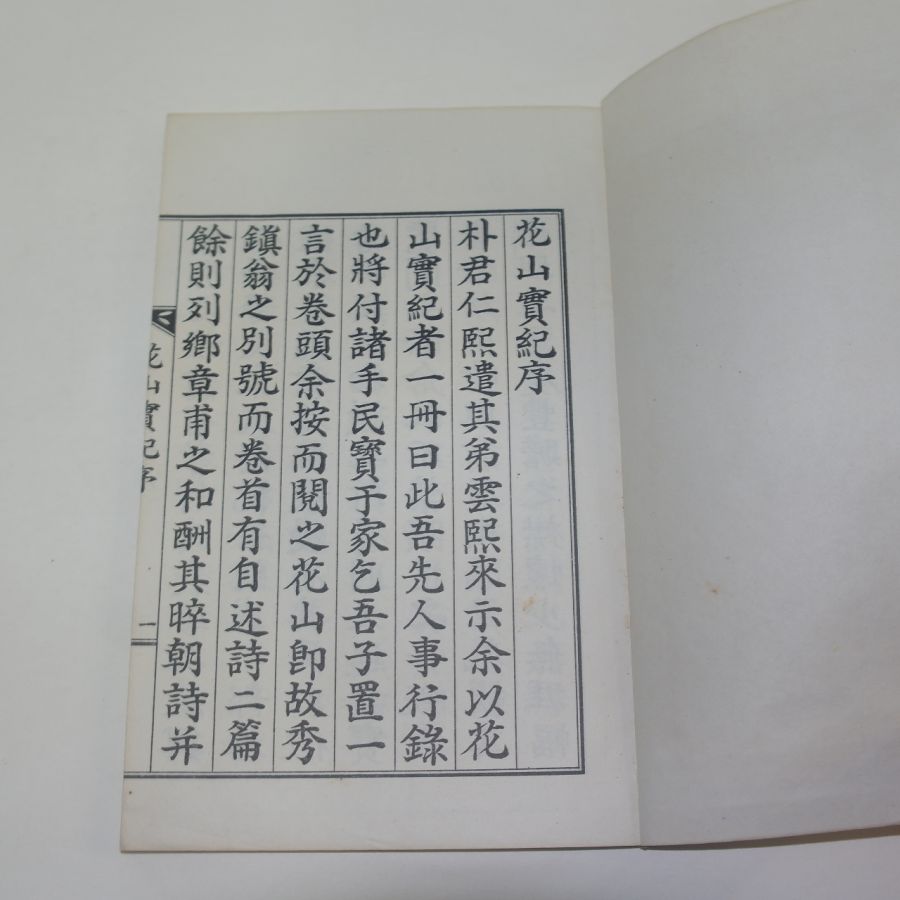 花山實紀序
朴君仁熙遣其弟雲熙來示余以花
山實紀者一冊曰此吾先人事行錄
也將付諸手民寶于家乞吾子置一
言於卷頭余按而閱之花山卽故秀
鎭翁之別號而卷首有自述詩二篇
餘則列鄉章甫之和酬其晬朝詩并
花山實紀序
一